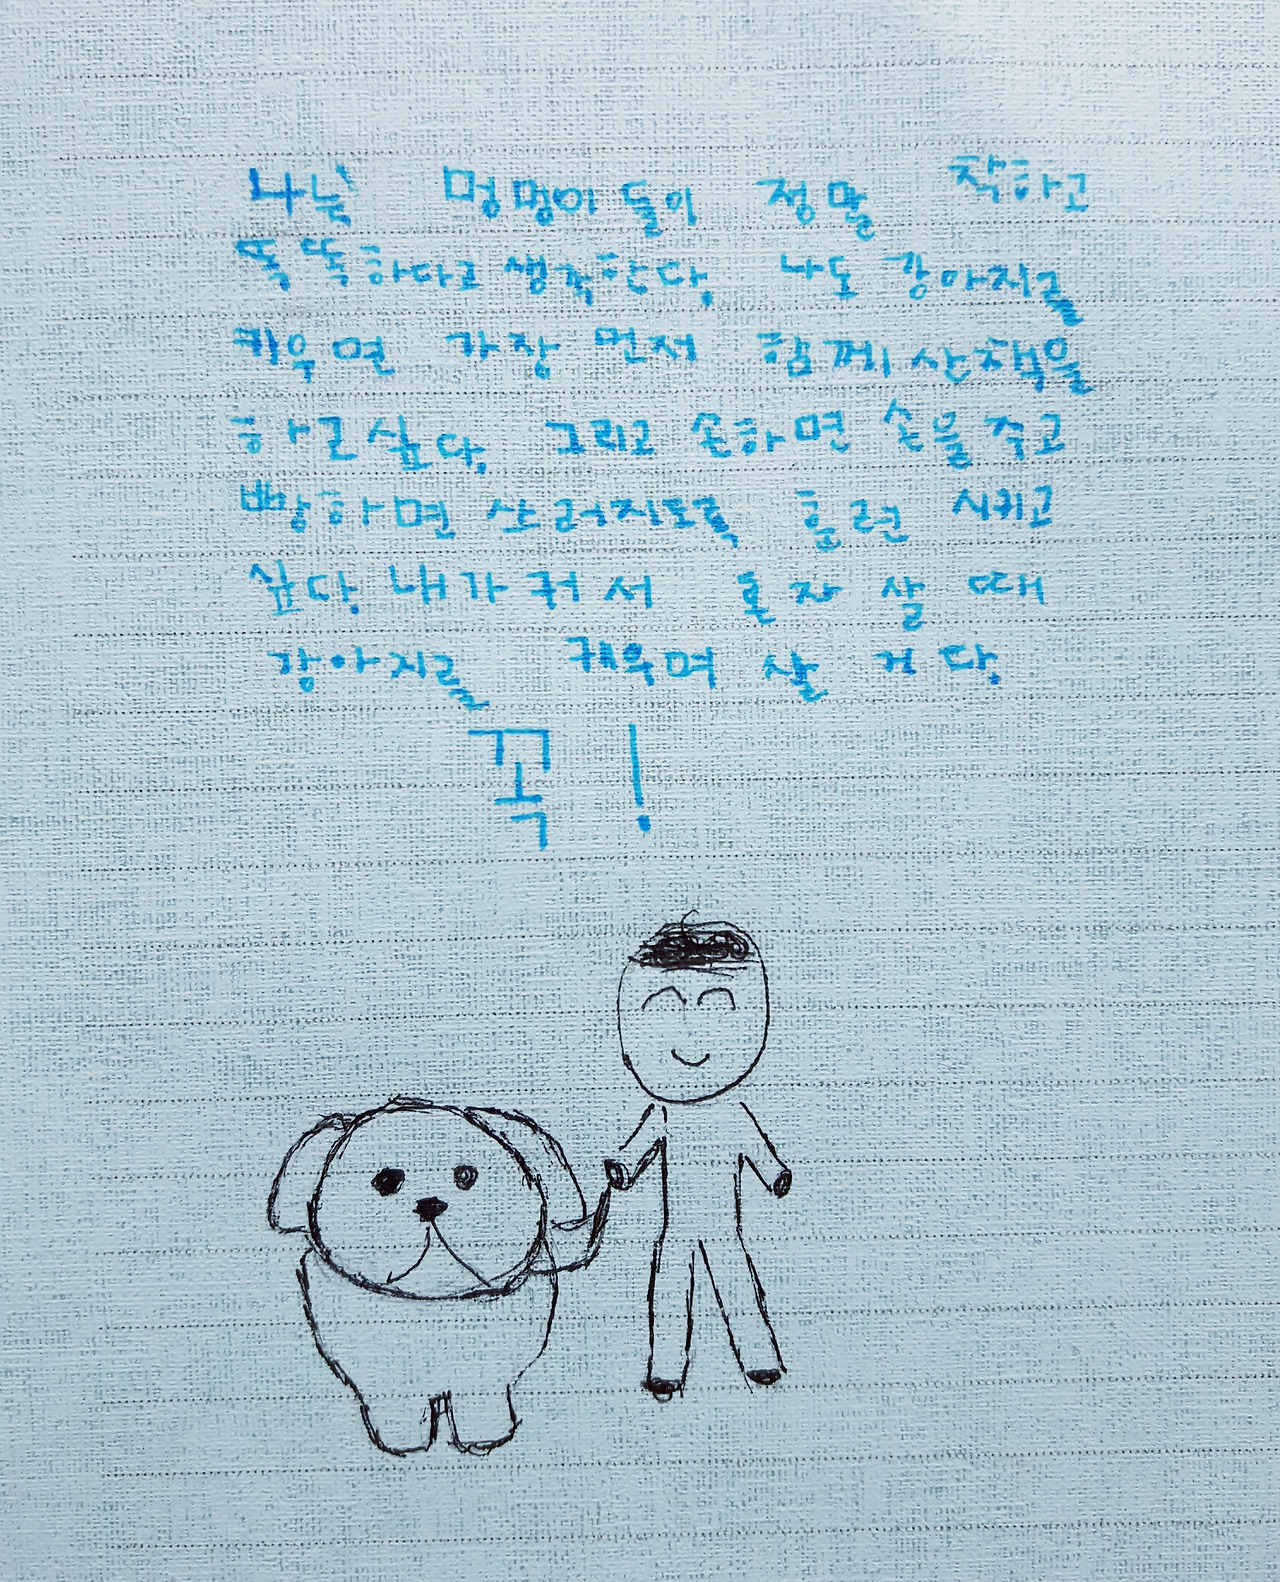 나는 멍멍이들이 정말 착하고
똑똑하다고 생각한다. 나도 강아지를
키우면 가장 먼저 함께 산책을
하고 싶다. 그리고 손하면 손을 주고
빵하면 쓰러지도록 훈련 시키고
싶다. 내가 커서 혼자 살 때
강아지를 키우며 살 거다.
꼭!